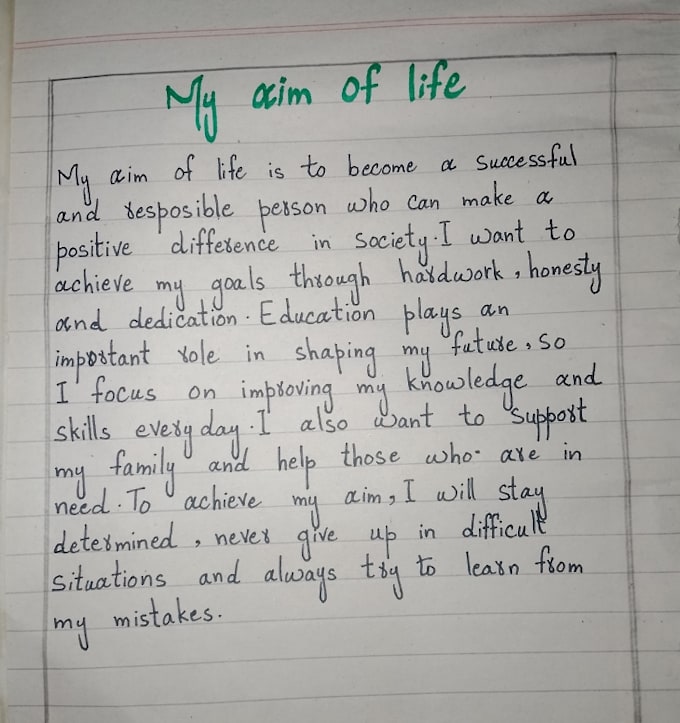 My aim of life
My aim of life is to become a successful
and resposible person who can make a
positive difference in society. I want to
achieve my goals through hardwork, honesty
and dedication. Education plays an
important role in shaping my future, so
I focus on improving my knowledge and
skills every day. I also want to support
my family and help those who are in
need. To achieve my aim, I will stay
determined, never give up in difficult
situations and always try to learn from
my mistakes.